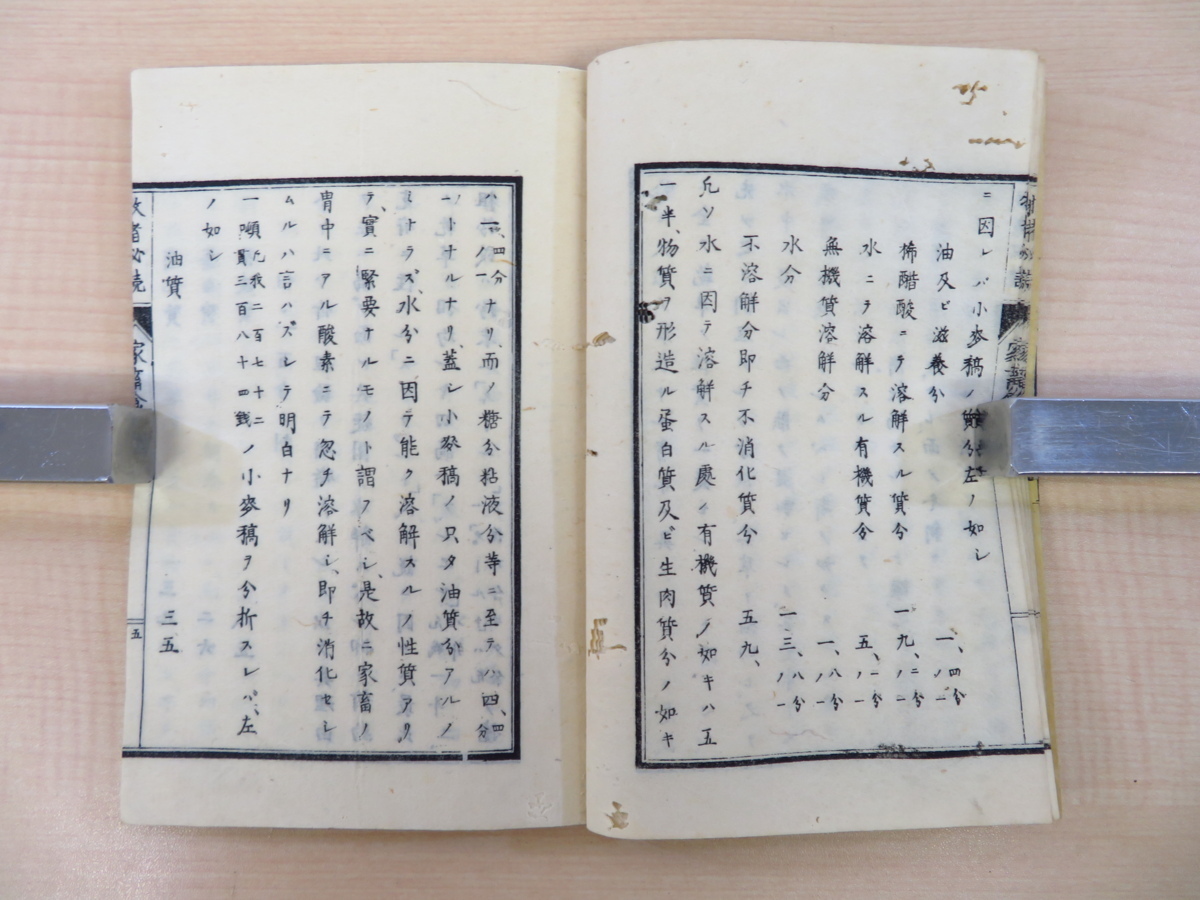 ニ因レバ小麥稿ノ質分左ノ如シ
油及ビ滋養分 一、四分ノ一
稀醋酸ニテ溶解スル質分 一九、二分ノ一
水ニテ溶解スル有機質分 五、二分ノ一
無機質溶解分 一、八分ノ一
水分 一三、八分ノ一
不溶解分即チ不消化質分 五九、
凡ソ水ニ因テ溶解スル處ノ有機質ノ如キハ五
一半、物質ヲ形造ル蛋白質及ビ生肉質分ノ如キ
一、四分ノ一ナリ、而ノ糖分粘液分等ニ至テハ四、四分
ノ一トナルナリ、蓋シ小麥稿ノ只タ油質分アルノ
ミナラズ、水分ニ因テ能ク溶解スルノ性質アリ
テ、實ニ緊要ナルモノト謂フベシ、是故ニ家畜ノ
胃中ニアル酸素ニテ忽チ溶解シ、即チ消化セシ
ムルハ言ハズシテ明白ナリ
一噸凡我二百七十二貫三百八十四錢ノ小麥稿ヲ分析スレバ、左
ノ如シ
油質 三五
牧者必読
家畜
五